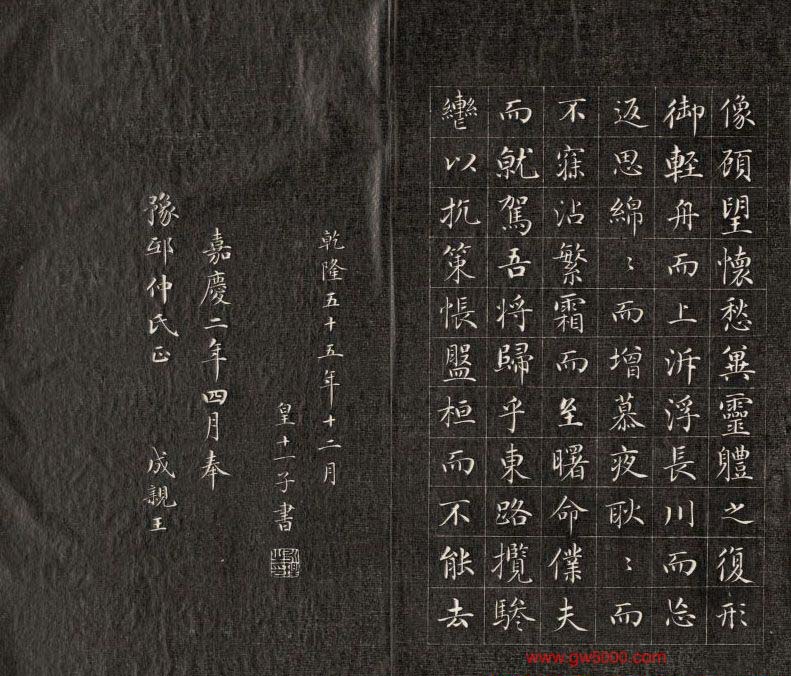 像頋望懷愁兾靈體之復形
御輕舟而上泝浮長川而忘
返思綿〻而增慕夜耿〻而
不寐沾繁霜而至曙命僕夫
而就駕吾將歸乎東路攬驂
轡以抗策悵盤桓而不能去
乾隆五十五年十二月
皇十一子書
嘉慶二年四月奉
豫邨仲氏正 成親王
www.gw5000.com